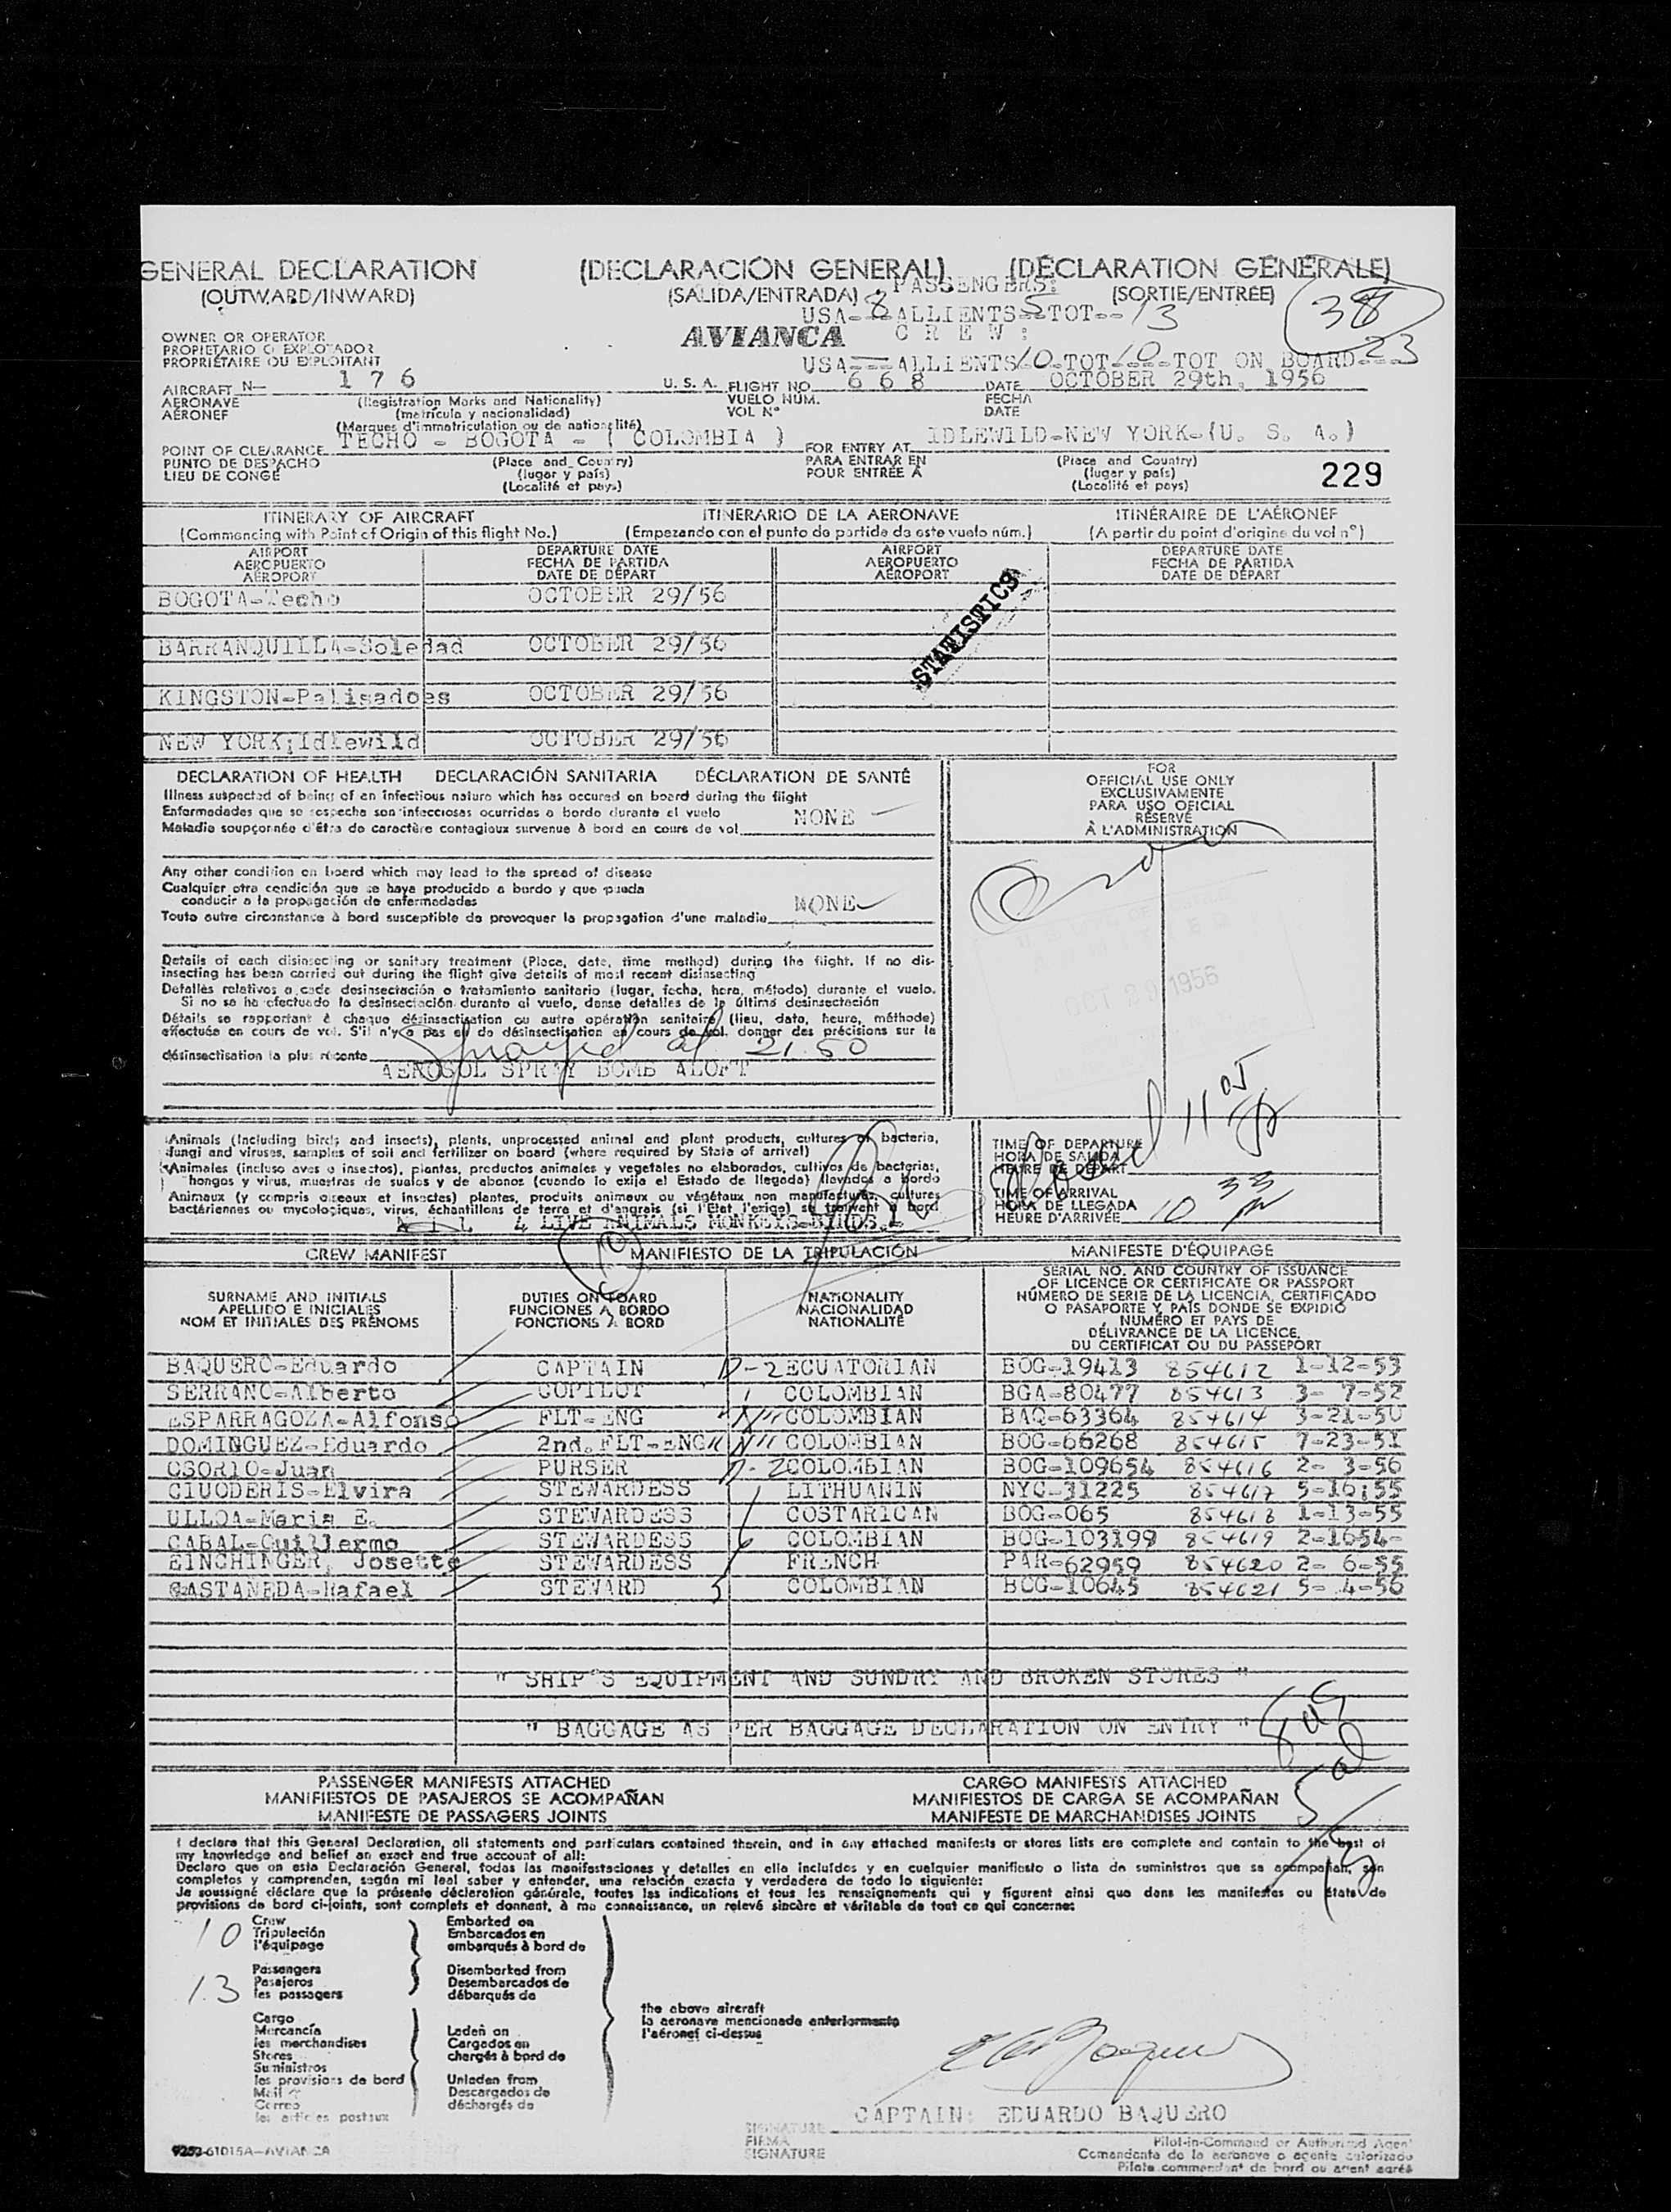 GENERAL DECLARATION (DECLARACIÓN GENERAL) (DÉCLARATION GÉNÉRALE)
(OUTWARD/INWARD) (SALIDA/ENTRADA) (SORTIE/ENTRÉE)
PASSENGERS: 38
USA--8 ALLIENTS 5 TOT--13
AVIANCA CREW:
USA ALLIENTS 10 TOT 10 TOT ON BOARD 23
OWNER OR OPERATOR
PROPIETARIO O EXPLOTADOR
PROPRIÉTAIRE OU EXPLOITANT
AIRCRAFT N— 176 U. S. A. FLIGHT NO. 668 DATE OCTOBER 29th, 1956
AERONAVE (Registration Marks and Nationality) VUELO NÚM. FECHA
AÉRONEF (matrícula y nacionalidad) VOL Nº DATE
(Marques d'immatriculation ou de nationalité)
POINT OF CLEARANCE TECHO - BOGOTA - ( COLOMBIA ) FOR ENTRY AT IDLEWILD-NEW YORK-(U. S. A.)
PUNTO DE DESPACHO (Place and Country) PARA ENTRAR EN (Place and Country)
LIEU DE CONGÉ (lugar y país) POUR ENTRÉE À (lugar y país)
(Localité et pays) (Localité et pays)
229
ITINERARY OF AIRCRAFT ITINERARIO DE LA AERONAVE ITINÉRAIRE DE L'AÉRONEF
(Commencing with Point of Origin of this flight No.) (Empezando con el punto de partida de este vuelo núm.) (A partir du point d'origine du vol nº)
AIRPORT DEPARTURE DATE AIRPORT DEPARTURE DATE
AEROPUERTO FECHA DE PARTIDA AEROPUERTO FECHA DE PARTIDA
AÉROPORT DATE DE DÉPART AÉROPORT DATE DE DÉPART
BOGOTA-Techo OCTOBER 29/56
STATISTICS
BARRANQUILLA-Soledad OCTOBER 29/56
KINGSTON-Palisadoes OCTOBER 29/56
NEW YORK;Idlewild OCTOBER 29/56
DECLARATION OF HEALTH DECLARACIÓN SANITARIA DÉCLARATION DE SANTÉ
Illness suspected of being of an infectious nature which has occured on board during the flight
Enfermedades que se sospecha son infecciosas ocurridas a bordo durante el vuelo NONE
Maladie soupçonnée d'être de caractère contagieux survenue à bord en cours de vol
FOR
OFFICIAL USE ONLY
EXCLUSIVAMENTE
PARA USO OFICIAL
RÉSERVÉ
À L'ADMINISTRATION
Any other condition on board which may lead to the spread of disease
Cualquier otra condición que se haya producido a bordo y que pueda
conducir a la propagación de enfermedades NONE
Toute autre circonstance à bord susceptible de provoquer la propagation d'une maladie
Details of each disinsecting or sanitary treatment (Place, date, time method) during the flight. If no dis-
insecting has been carried out during the flight give details of most recent disinsecting
Detalles relativos a cada desinsectación o tratamiento sanitario (lugar, fecha, hora, método) durante el vuelo.
Si no se ha efectuado la desinsectación durante el vuelo, danse detalles de la última desinsectación
Détails se rapportant à chaque désinsectisation ou autre opération sanitaire (lieu, date, heure, méthode)
effectuée en cours de vol. S'il n'y a pas eu de désinsectisation en cours de vol, donner des précisions sur la
désinsectisation la plus récente Sprayed at 21.50
AEROSOL SPRAY BOMB ALOFT
OCT 29 1956
11 05
Animals (including birds and insects), plants, unprocessed animal and plant products, cultures of bacteria,
fungi and viruses, samples of soil and fertilizer on board (where required by State of arrival)
Animales (incluso aves o insectos), plantas, productos animales y vegetales no elaborados, cultivos de bacterias,
hongos y virus, muestras de suelos y de abonos (cuando lo exija el Estado de llegada) llevados a bordo
Animaux (y compris oiseaux et insectes) plantes, produits animaux ou végétaux non manufacturés, cultures
bactériennes ou mycologiques, virus, échantillons de terre et d'engrais (si l'Etat l'exige) se trouvent à bord
NIL 4 LIVE ANIMALS MONKEYS-BIRDS.-
TIME OF DEPARTURE
HORA DE SALIDA
HEURE DE DÉPART
TIME OF ARRIVAL
HORA DE LLEGADA
HEURE D'ARRIVÉE 10 33 pm
CREW MANIFEST 10 MANIFIESTO DE LA TRIPULACIÓN MANIFESTE D'ÉQUIPAGE
SURNAME AND INITIALS DUTIES ON BOARD NATIONALITY
APELLIDO E INICIALES FUNCIONES A BORDO NACIONALIDAD
NOM ET INITIALES DES PRÉNOMS FONCTIONS À BORD NATIONALITÉ
SERIAL NO. AND COUNTRY OF ISSUANCE
OF LICENCE OR CERTIFICATE OR PASSPORT
NÚMERO DE SERIE DE LA LICENCIA, CERTIFICADO
O PASAPORTE Y PAÍS DONDE SE EXPIDIÓ
NUMÉRO ET PAYS DE
DÉLIVRANCE DE LA LICENCE,
DU CERTIFICAT OU DU PASSEPORT
BAQUERO-Eduardo CAPTAIN D-2 ECUATORIAN BOG-19413 854612 1-12-53
SERRANO-Alberto COPILOT COLOMBIAN BGA-80477 854613 3- 7-52
ESPARRAGOZA-Alfonso FLT-ENG COLOMBIAN BAQ-63364 854614 3-21-50
DOMINGUEZ-Eduardo 2nd. FLT-ENG COLOMBIAN BOG-66268 854615 7-23-51
OSORIO-Juan PURSER D-2 COLOMBIAN BOG-109654 854616 2- 3-56
CIUODERIS-Elvira STEWARDESS LITHUANIN NYC-31225 854617 5-16;55
ULLOA-Maria E. STEWARDESS COSTARICAN BOG-065 854618 1-13-55
CABAL-Guillermo STEWARDESS COLOMBIAN BOG-103199 854619 2-1654-
EINCHINGER, Josette STEWARDESS FRENCH PAR-62959 854620 2- 6-55
CASTANEDA-Rafael STEWARD COLOMBIAN BOG-10645 854621 5- 4-56
" SHIP'S EQUIPMENT AND SUNDRY AND BROKEN STORES "
" BAGGAGE AS PER BAGGAGE DECLARATION ON ENTRY "
8 us
5 al
13
PASSENGER MANIFESTS ATTACHED CARGO MANIFESTS ATTACHED
MANIFIESTOS DE PASAJEROS SE ACOMPAÑAN MANIFIESTOS DE CARGA SE ACOMPAÑAN
MANIFESTE DE PASSAGERS JOINTS MANIFESTE DE MARCHANDISES JOINTS
I declare that this General Declaration, all statements and particulars contained therein, and in any attached manifests or stores lists are complete and contain to the best of
my knowledge and belief an exact and true account of all:
Declaro que en esta Declaración General, todas las manifestaciones y detalles en ella incluídos y en cualquier manifiesto o lista de suministros que se acompañan, son
completos y comprenden, según mi leal saber y entender, una relación exacta y verdadera de todo lo siguiente:
Je soussigné déclare que la présente déclaration générale, toutes les indications et tous les renseignements qui y figurent ainsi que dans les manifestes ou états de
provisions de bord ci-joints, sont complets et donnent, à ma connaissance, un relevé sincère et véritable de tout ce qui concerne:
10 Crew Embarked on
Tripulación Embarcados en
l'équipage embarqués à bord de
13 Passengers Disembarked from
Pasajeros Desembarcados de
les passagers débarqués de
the above aircraft
la aeronave mencionada anteriormente
l'aéronef ci-dessus
Cargo
Mercancía Laden on
les merchandises Cargados en
Stores chargés à bord de
Suministros
les provisions de bord Unladen from
Mail Descargados de
Correo déchargés de
les articles postaux
CAPTAIN: EDUARDO BAQUERO
SIGNATURE
FIRMA
SIGNATURE
Pilot-in-Command or Authorized Agent
Comandante de la aeronave o agente autorizado
Pilote commandant de bord ou agent agréé
9252-61015A—AVIANCA